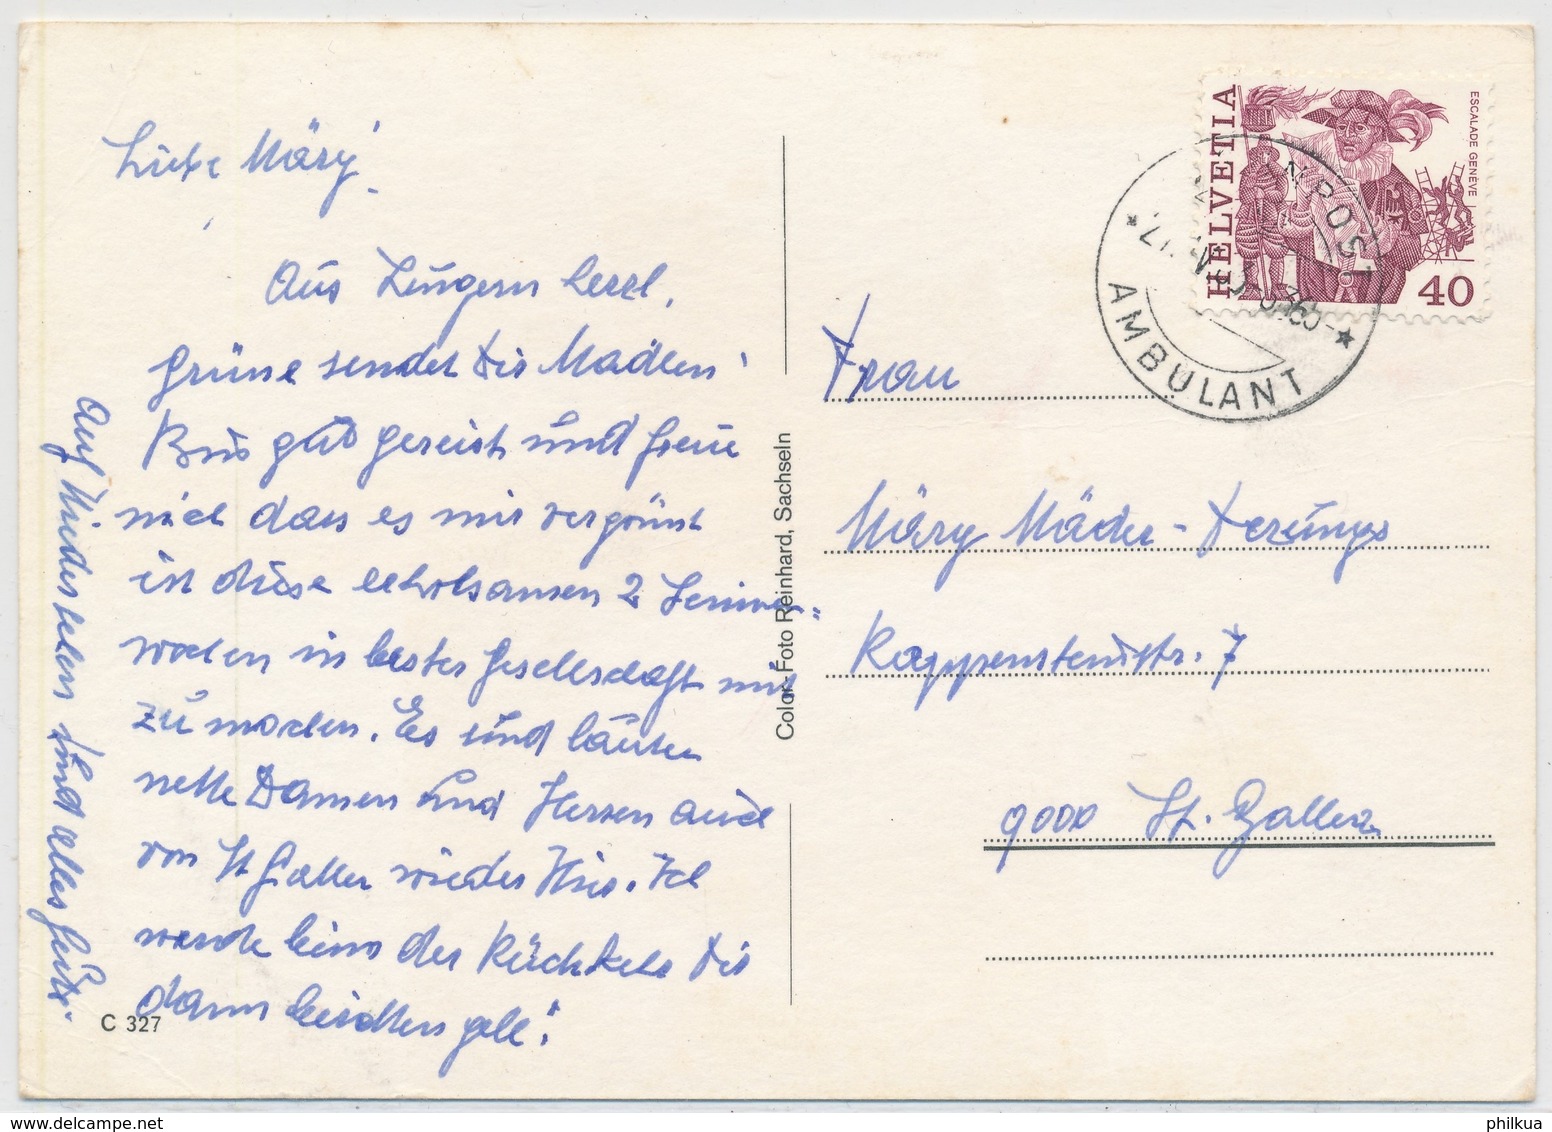 Liebe Märy!
Aus Lungern herzl.
grüsse sendet Dir Madlen!
Bin gut gereist und freue
mich dass es mir vergönnt
ist diese erholsamen 2 Ferien=
wochen in bester Gesellschaft mit
zu machen. Es sind lauter
nette Damen und Herren auch
von St Gallen wieder hier. Ich
werde beim der Rückkehr Dir
dann berichten gell!
Auf Wiedersehen und alles Gute.
C 327
Color-Foto Reinhard, Sachseln
HELVETIA
ESCALADE GENÈVE
40
AMBULANT
Frau
Märy Mäder-
Rappensteinstr. 7
9000 St. Gallen
philkua